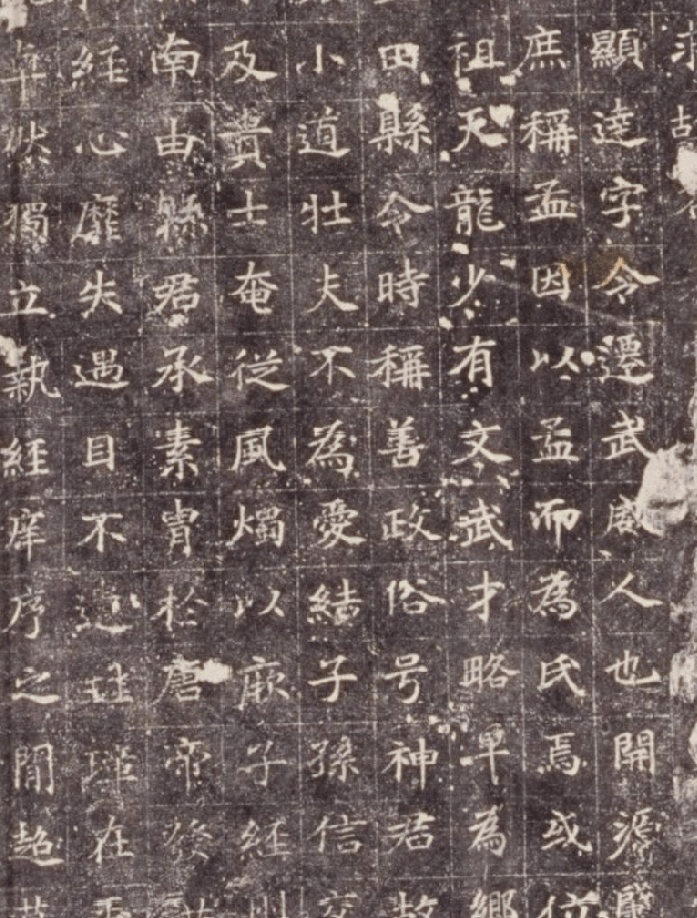 故
顯達字令遷武威人也開源
庶稱孟因以孟而為氏焉或
祖天龍少有文武才略早為鄉
田縣令時稱善政俗号神君故
小道壯夫不為愛結子孫信交
及貴士奄從風燭以厥子經
南由縣君承素胄於唐帝發
經心靡失遇目不遺在
卓然獨立執經庠序之間超